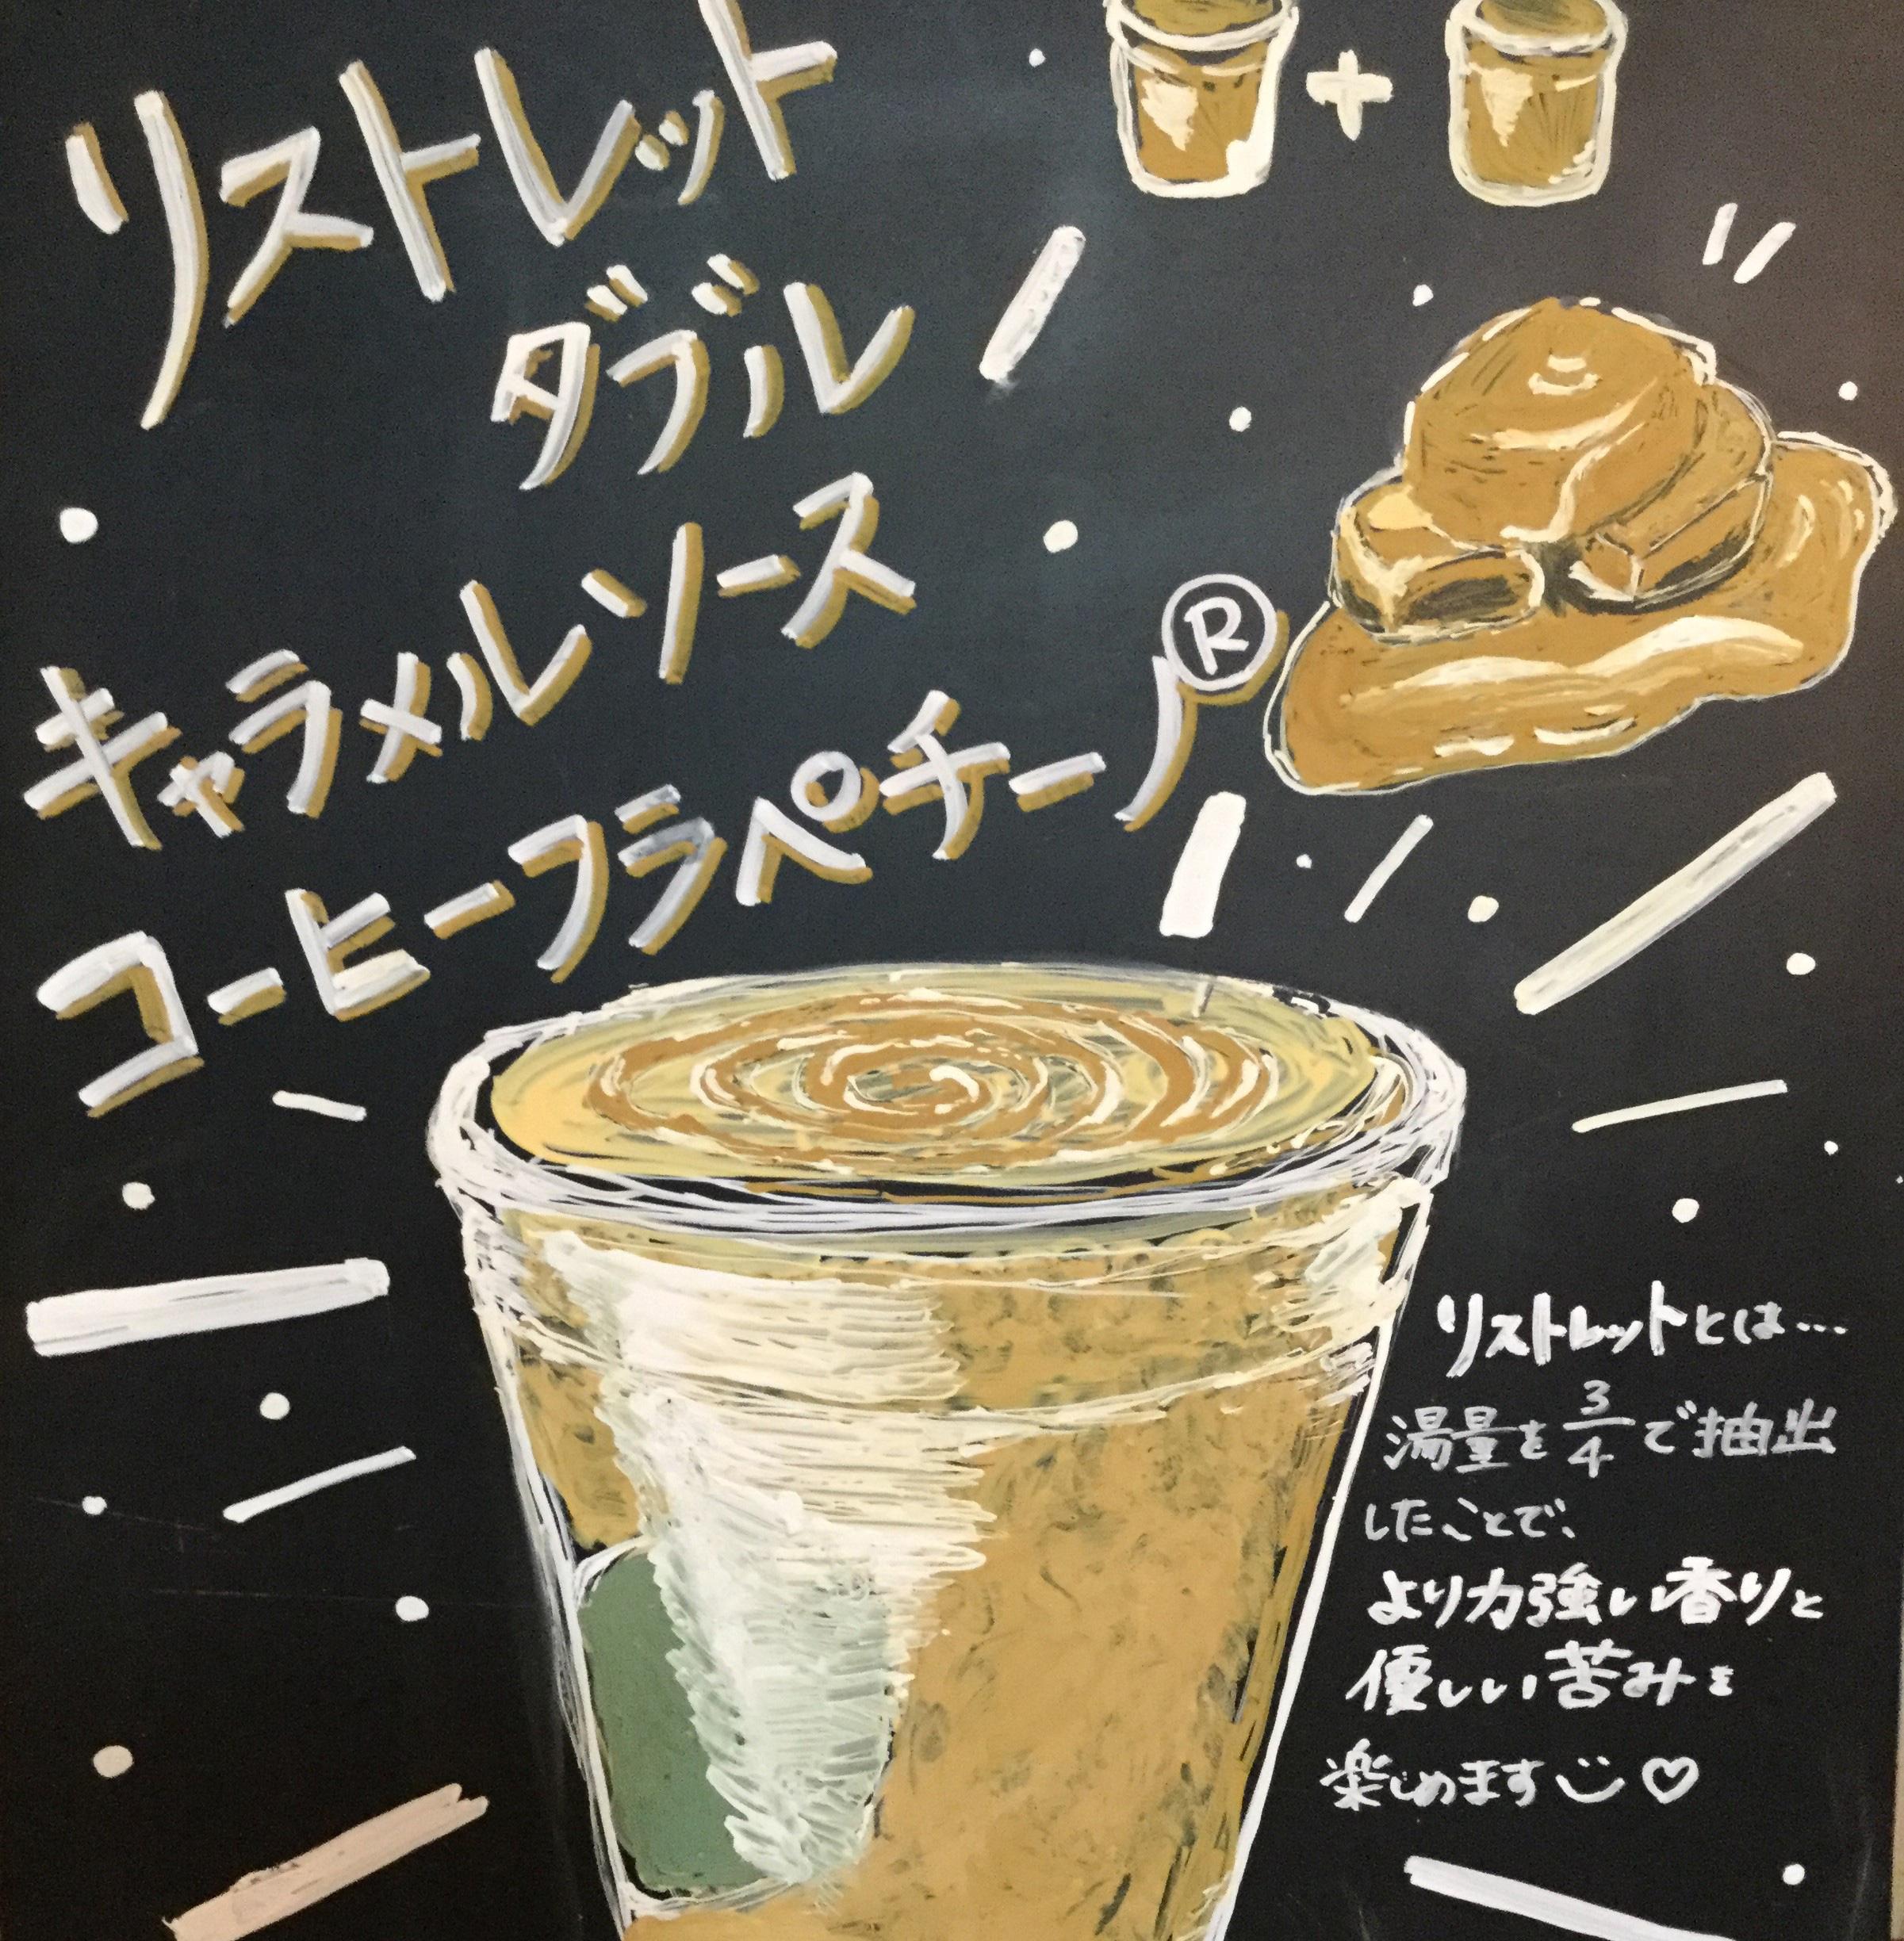 リストレット
ダブル
キャラメルソース
コーヒーフラペチーノ®
+
リストレットとは…
湯量を3/4で抽出
したことで、
より力強い香りと
優しい苦みを
楽しめます